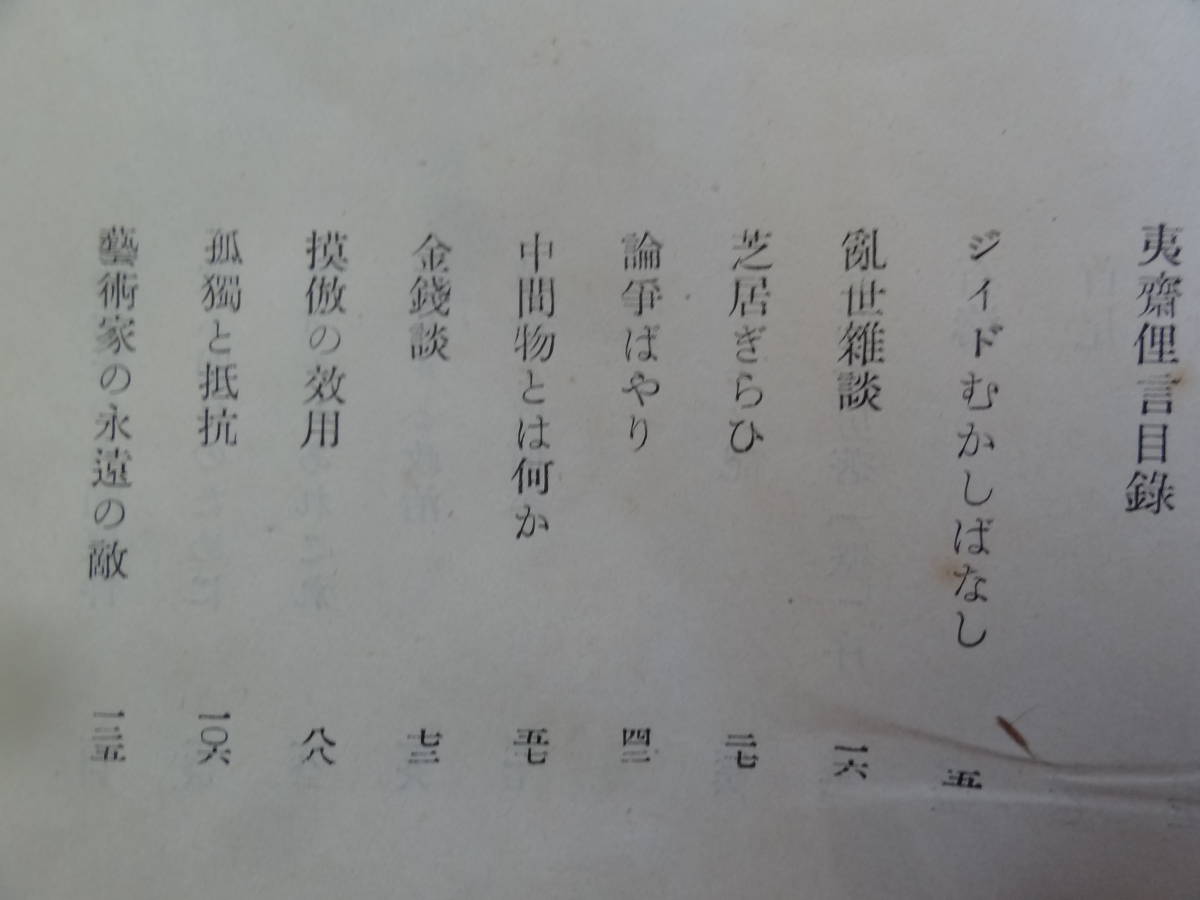 夷齋俚言目錄
ジイドむかしばなし 五
亂世雜談 一六
芝居ぎらひ 二七
論爭ばやり 四二
中間物とは何か 五七
金錢談 七二
摸倣の效用 八八
孤獨と抵抗 一〇六
藝術家の永遠の敵 一二五